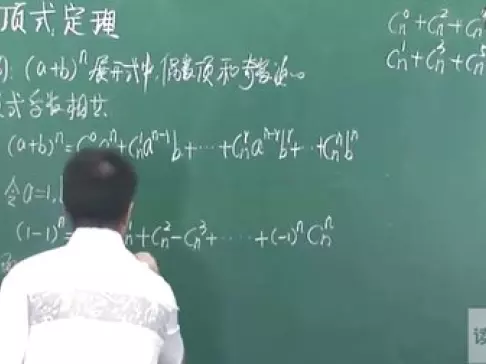 项式定理
(a+b)^n 展开式中,偶数项和奇数项
式系数相等
(a+b)^n = C_n^0 a^n + C_n^1 a^{n-1} b + … + C_n^r a^{n-r} b^r + … + C_n^n b^n
令 a=1,
(1-1)^n = + C_n^2 - C_n^3 + …… + (-1)^n C_n^n
C_n^0 + C_n^2 + C_n
C_n^1 + C_n^3 + C_n^5
读